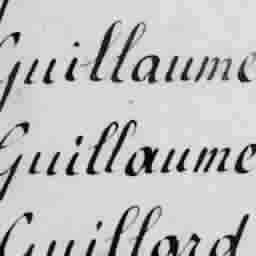 Guillaume
Guillaume
Guillard